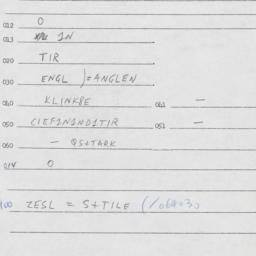 012 O
013 1N
020 TIR
030 ENGL )=ANGLEN
040 KLINKPE 041 —
050 CIEF1N1ND1TIR 051 —
060 — QS+TARK
014 O
100 ZESL = S+TILE (